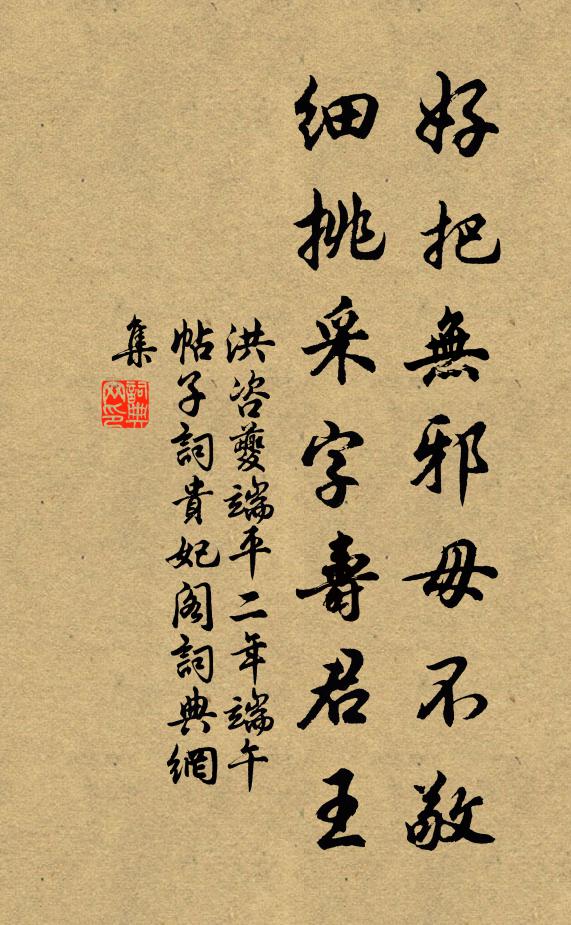 好把無邪毋不敬
細挑采字壽君王
洪咨夔端平二年端午
帖子詞貴妃閣詞典網
集
詞典
网印